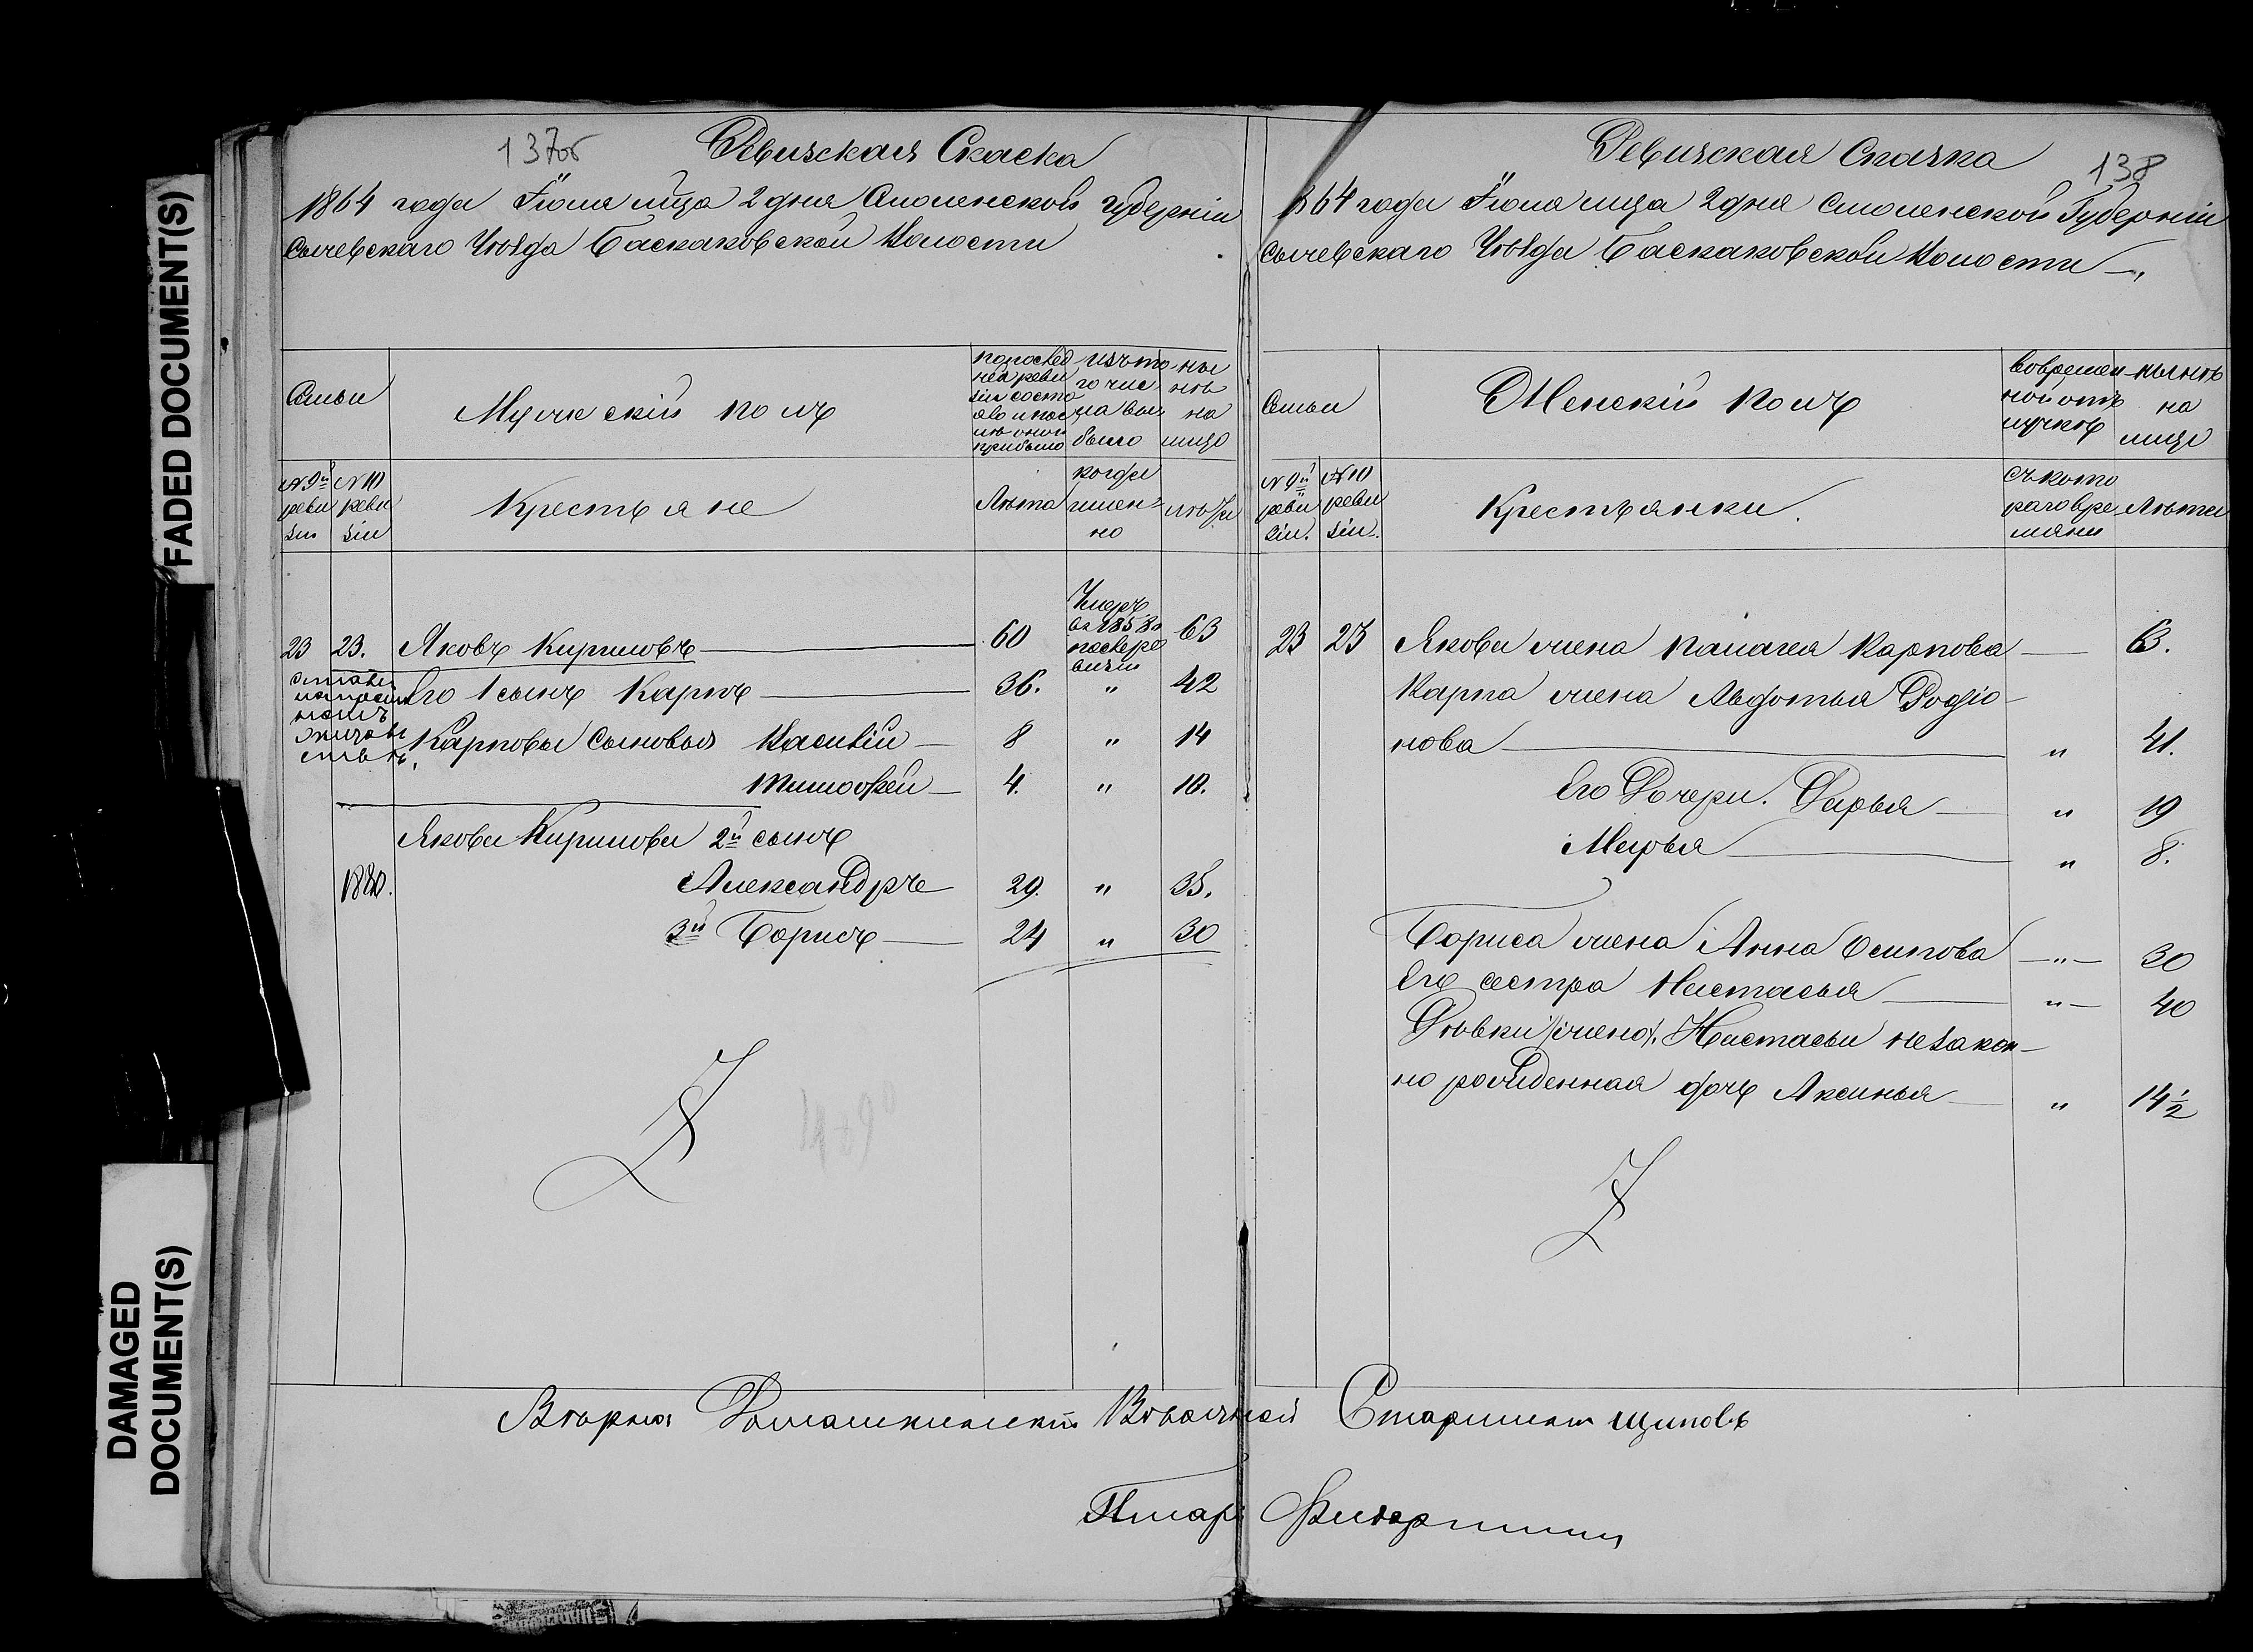 FADED DOCUMENT(S)
DAMAGED
DOCUMENT(S)
137об
Ревизская Скаска
1864 года Іюля мца 2 дня Смоленской губерніи
Сычевскаго Уѣзда Баскаковской Волости
Семьи
Мужескій полъ
по послѣд
ней реви
зіи состо
яло и пос
лѣ оной
прибыло
изъ то
го чис
ла вы
было
ны
нѣ
на
лицо
№ 9й
реви
зіи
№ 10
реви
зіи
Крестьяне
Лѣта
когда
имен-
но
лѣта
23 23. Яковъ Кириловъ 60
Умеръ
въ 1858
после ре
визіи
63
Его 1 сынъ Карпъ 36. " 42
Карповы Сыновья Василій 8 " 14
Тимофей 4. " 10.
Якова Кирилова 2й сынъ
Александръ 29. " 35.
3й Борисъ 24 " 30
138
Ревизская Сказка
1864 года Іюля мца 2 дня Смоленской Губерніи
Сычевскаго Уѣзда Баскаковской Волости
Семьи
Женскій полъ
во времен
ной отъ
лучкѣ
нынѣ
на
лицо
№ 9й
реви
зіи.
№ 10
реви
зіи.
Крестьянки.
съ кото
раго вре
мяни
Лѣта
23 23 Якова жена Палагея Карпова 63.
Карпа жена Авдотья Родіо-
нова " 41.
Его Дочери. Дарья " 19
Марья " 8.
Бориса жена Анна Осипова " 30
Его сестра Настасья " 40
Дѣвки Настасьи незакон-
но рожденная дочь Аксинья " 14 1/2
Волостной Старшина Щиповъ
Писарь